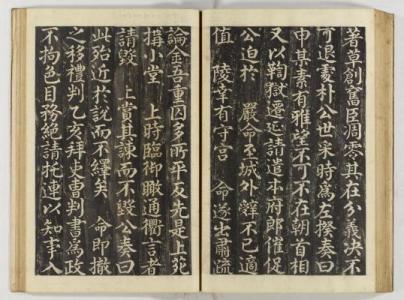 著草創舊臣凋零其在分義決不
可退憂朴公世采時為左揆奏曰
申某素有雅望不可不在朝首相
又以鞫獄遷延請遣本府郎催促
公迫於 嚴命至城外辭不已適
值 陵幸有守宮 命遂出肅
論金吾重囚多所平反先是上苑
搆小堂 上時臨御瞰通衢言者
請毀 上賞其諫而不毀公奏曰
此殆近於說而不繹矣 命即撤
之移禮判乙亥拜吏曹判書為政
不拘色目務絕請托連以知事入